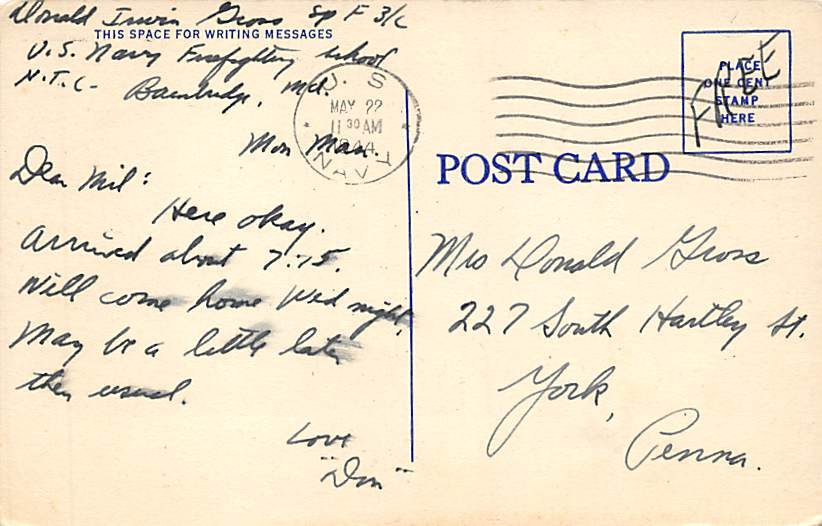 Donald Irwin Gross Sp F 3/c
THIS SPACE FOR WRITING MESSAGES
U.S. Navy Firefighting School
N.T.C- Bainbridge, Md.
U. S.
MAY 22
11 30 AM
1944
NAVY
Mon
Dear Mil:
Here okay.
Arrived about 7:15.
Will come home Wed night,
May be a little later
then usual.
Love
"Don"
PLACE
ONE CENT
STAMP
HERE
FREE
POST CARD
Mrs Donald Gross
227 South Hartley St.
York,
Penna.